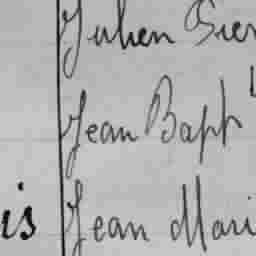 Julien Pier
Jean Bapt
is Jean Mari